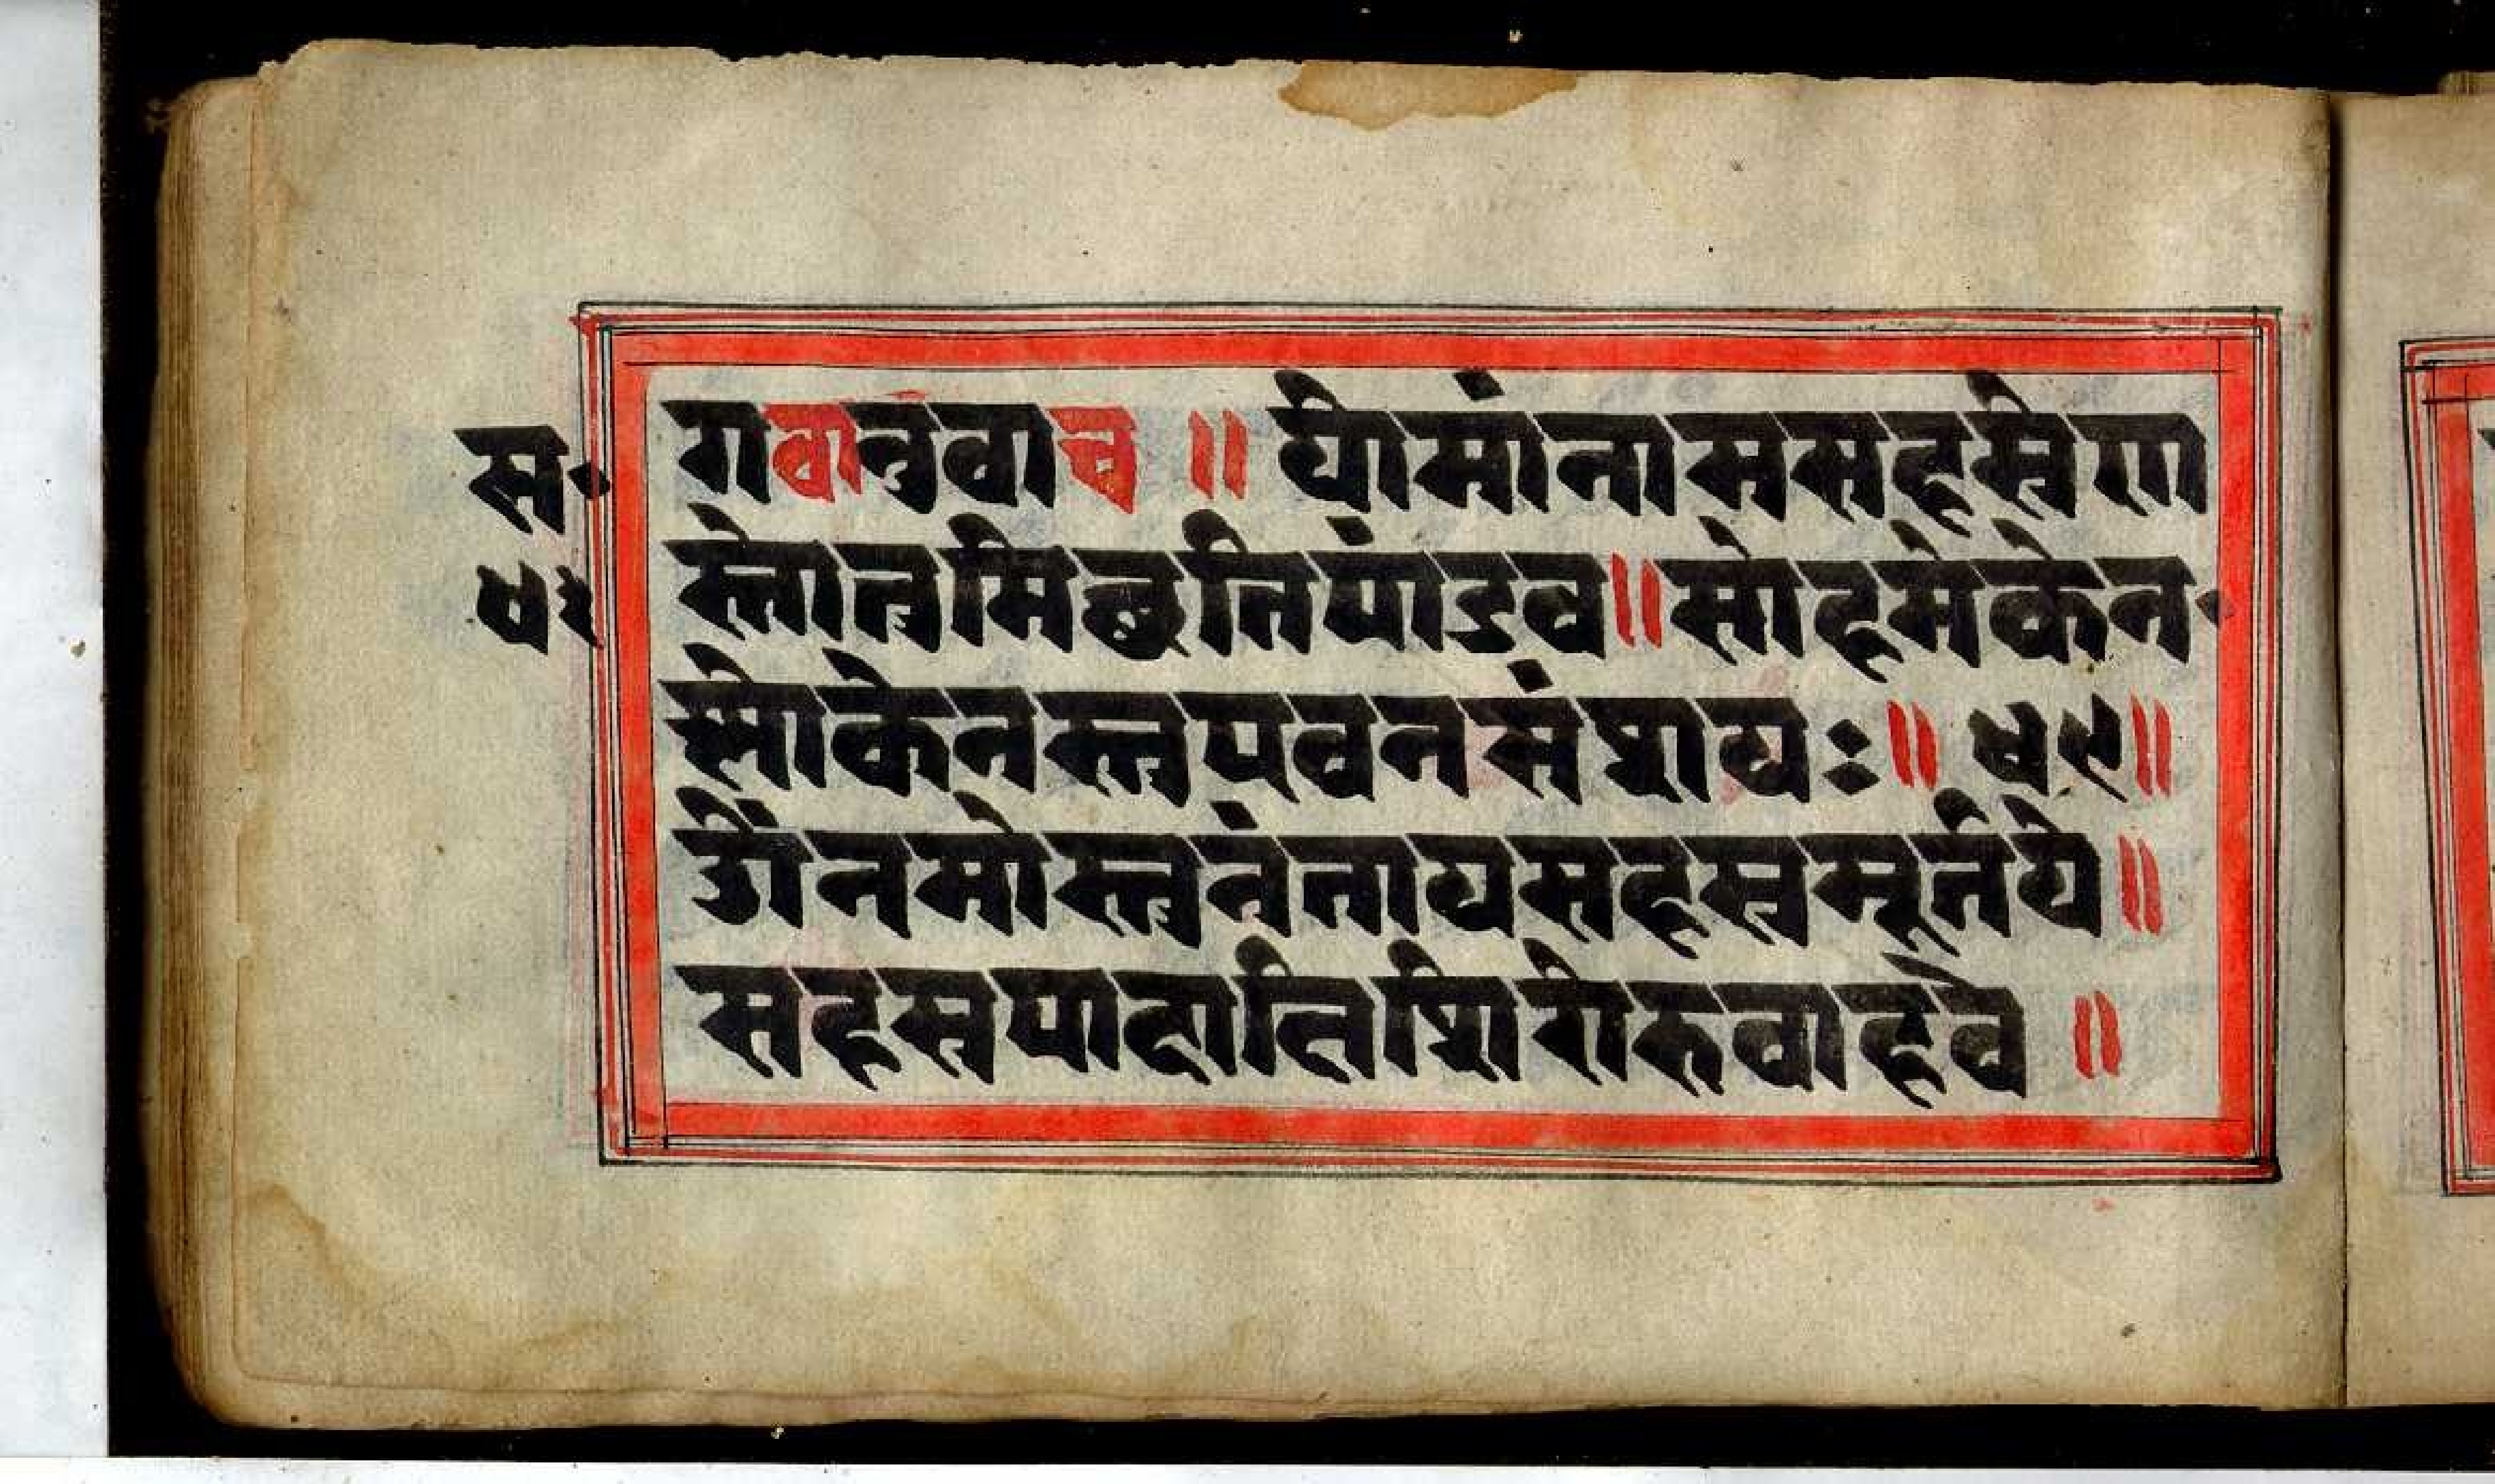 स॰
५१
गवानुवाच ॥ योमांनामसहस्रेण
स्तोतुमिछतिपांडव ॥ सोहमेकेन
श्लोकेनस्तुपवनसंशयः ॥ ५९ ॥
ॐनमोस्त्वनंतायसहस्रमूर्तये ॥
सहस्रपादाक्षिशिरोरुवाहवे ॥